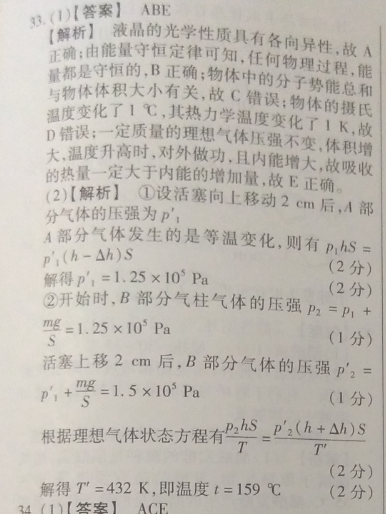 33.(1)【答案】 ABE
【解析】 液晶的光学性质具有各向异性,故 A
正确;由能量守恒定律可知,任何物理过程,能
量都是守恒的,B 正确;物体中的分子势能总和
与物体体积大小有关,故 C 错误;物体的摄氏
温度变化了 1 ℃,其热力学温度变化了 1 K,故
D 错误;一定质量的理想气体压强不变,体积增
大,温度升高时,对外做功,且内能增大,故吸收
的热量一定大于内能的增加量,故 E 正确。
(2)【解析】 ①设活塞向上移动 2 cm 后,A 部
分气体的压强为 p′₁
A 部分气体发生的是等温变化,则有 p₁hS =
p′₁(h − Δh)S (2 分)
解得 p′₁ = 1.25 × 10⁵ Pa (2 分)
②开始时,B 部分气柱气体的压强 p₂ = p₁ +
mg/S = 1.25 × 10⁵ Pa (1 分)
活塞上移 2 cm 后,B 部分气体的压强 p′₂ =
p′₁ + mg/S = 1.5 × 10⁵ Pa (1 分)
根据理想气体状态方程有 p₂hS/T = p′₂(h + Δh)S/T′
(2 分)
解得 T′ = 432 K,即温度 t = 159 ℃ (2 分)
34.(1)【答案】 ACE